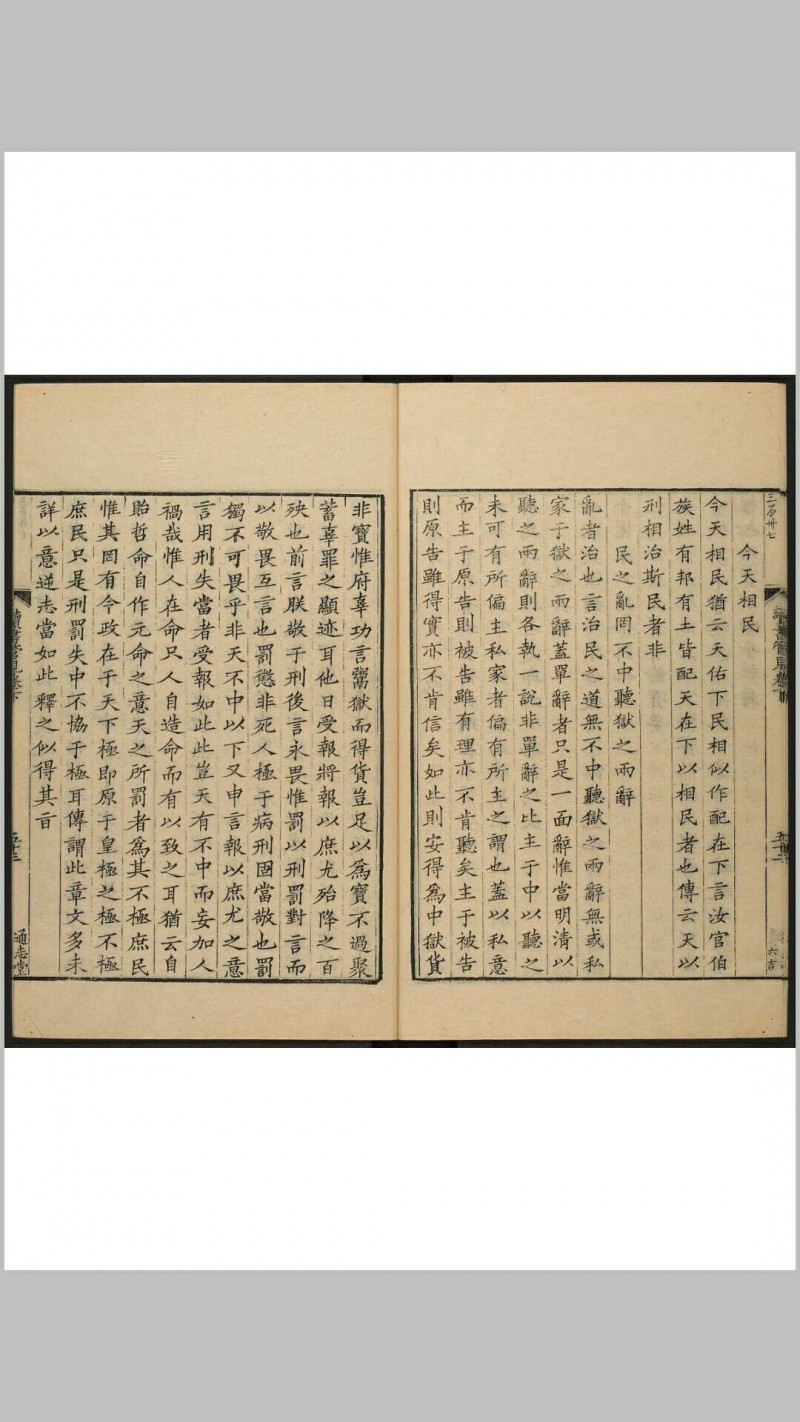 今天相民
今天相民猶云天佑下民相似作配在下言汝官伯
族姓有邦有土皆配天在下以相民者也傳云天以
刑相治斯民者非
民之亂罔不中聽獄之兩辭
亂者治也言治民之道無不中聽獄之兩辭無或私
家于獄之兩辭蓋單辭者只是一面辭惟當明清以
聽之兩辭則各執一說非單辭之比主于中以聽之
未可有所偏主私家者偏有所主之謂也蓋以私意
而主于原告則被告雖有理亦不肯聽矣主于被告
則原告雖得實亦不肯信矣如此則安得爲中獄貨
三百卅七
六吉
非寶惟府辜功言鬻獄而得貨豈足以爲寶不過聚
蓄辜罪之顯迹耳他日受報將報以庶尤殆降之百
殃也前言朕敬于刑後言永畏惟罰以刑罰對言而
以敬畏互言也罰懲非死人極于病刑固當敬也罰
獨不可畏乎非天不中以下又申言報以庶尤之意
言用刑失當者受報如此此豈天有不中而妄加人
禍哉惟人在命只人自造命而有以致之耳猶云自
貽哲命自作元命之意天之所罰者爲其不極庶民
惟其罔有令政在于天下極即原于皇極之極不極
庶民只是刑罰失中不協于極耳傳謂此章文多未
詳以意逆志當如此釋之似得其旨
讀書管見卷下
五十三
通志堂